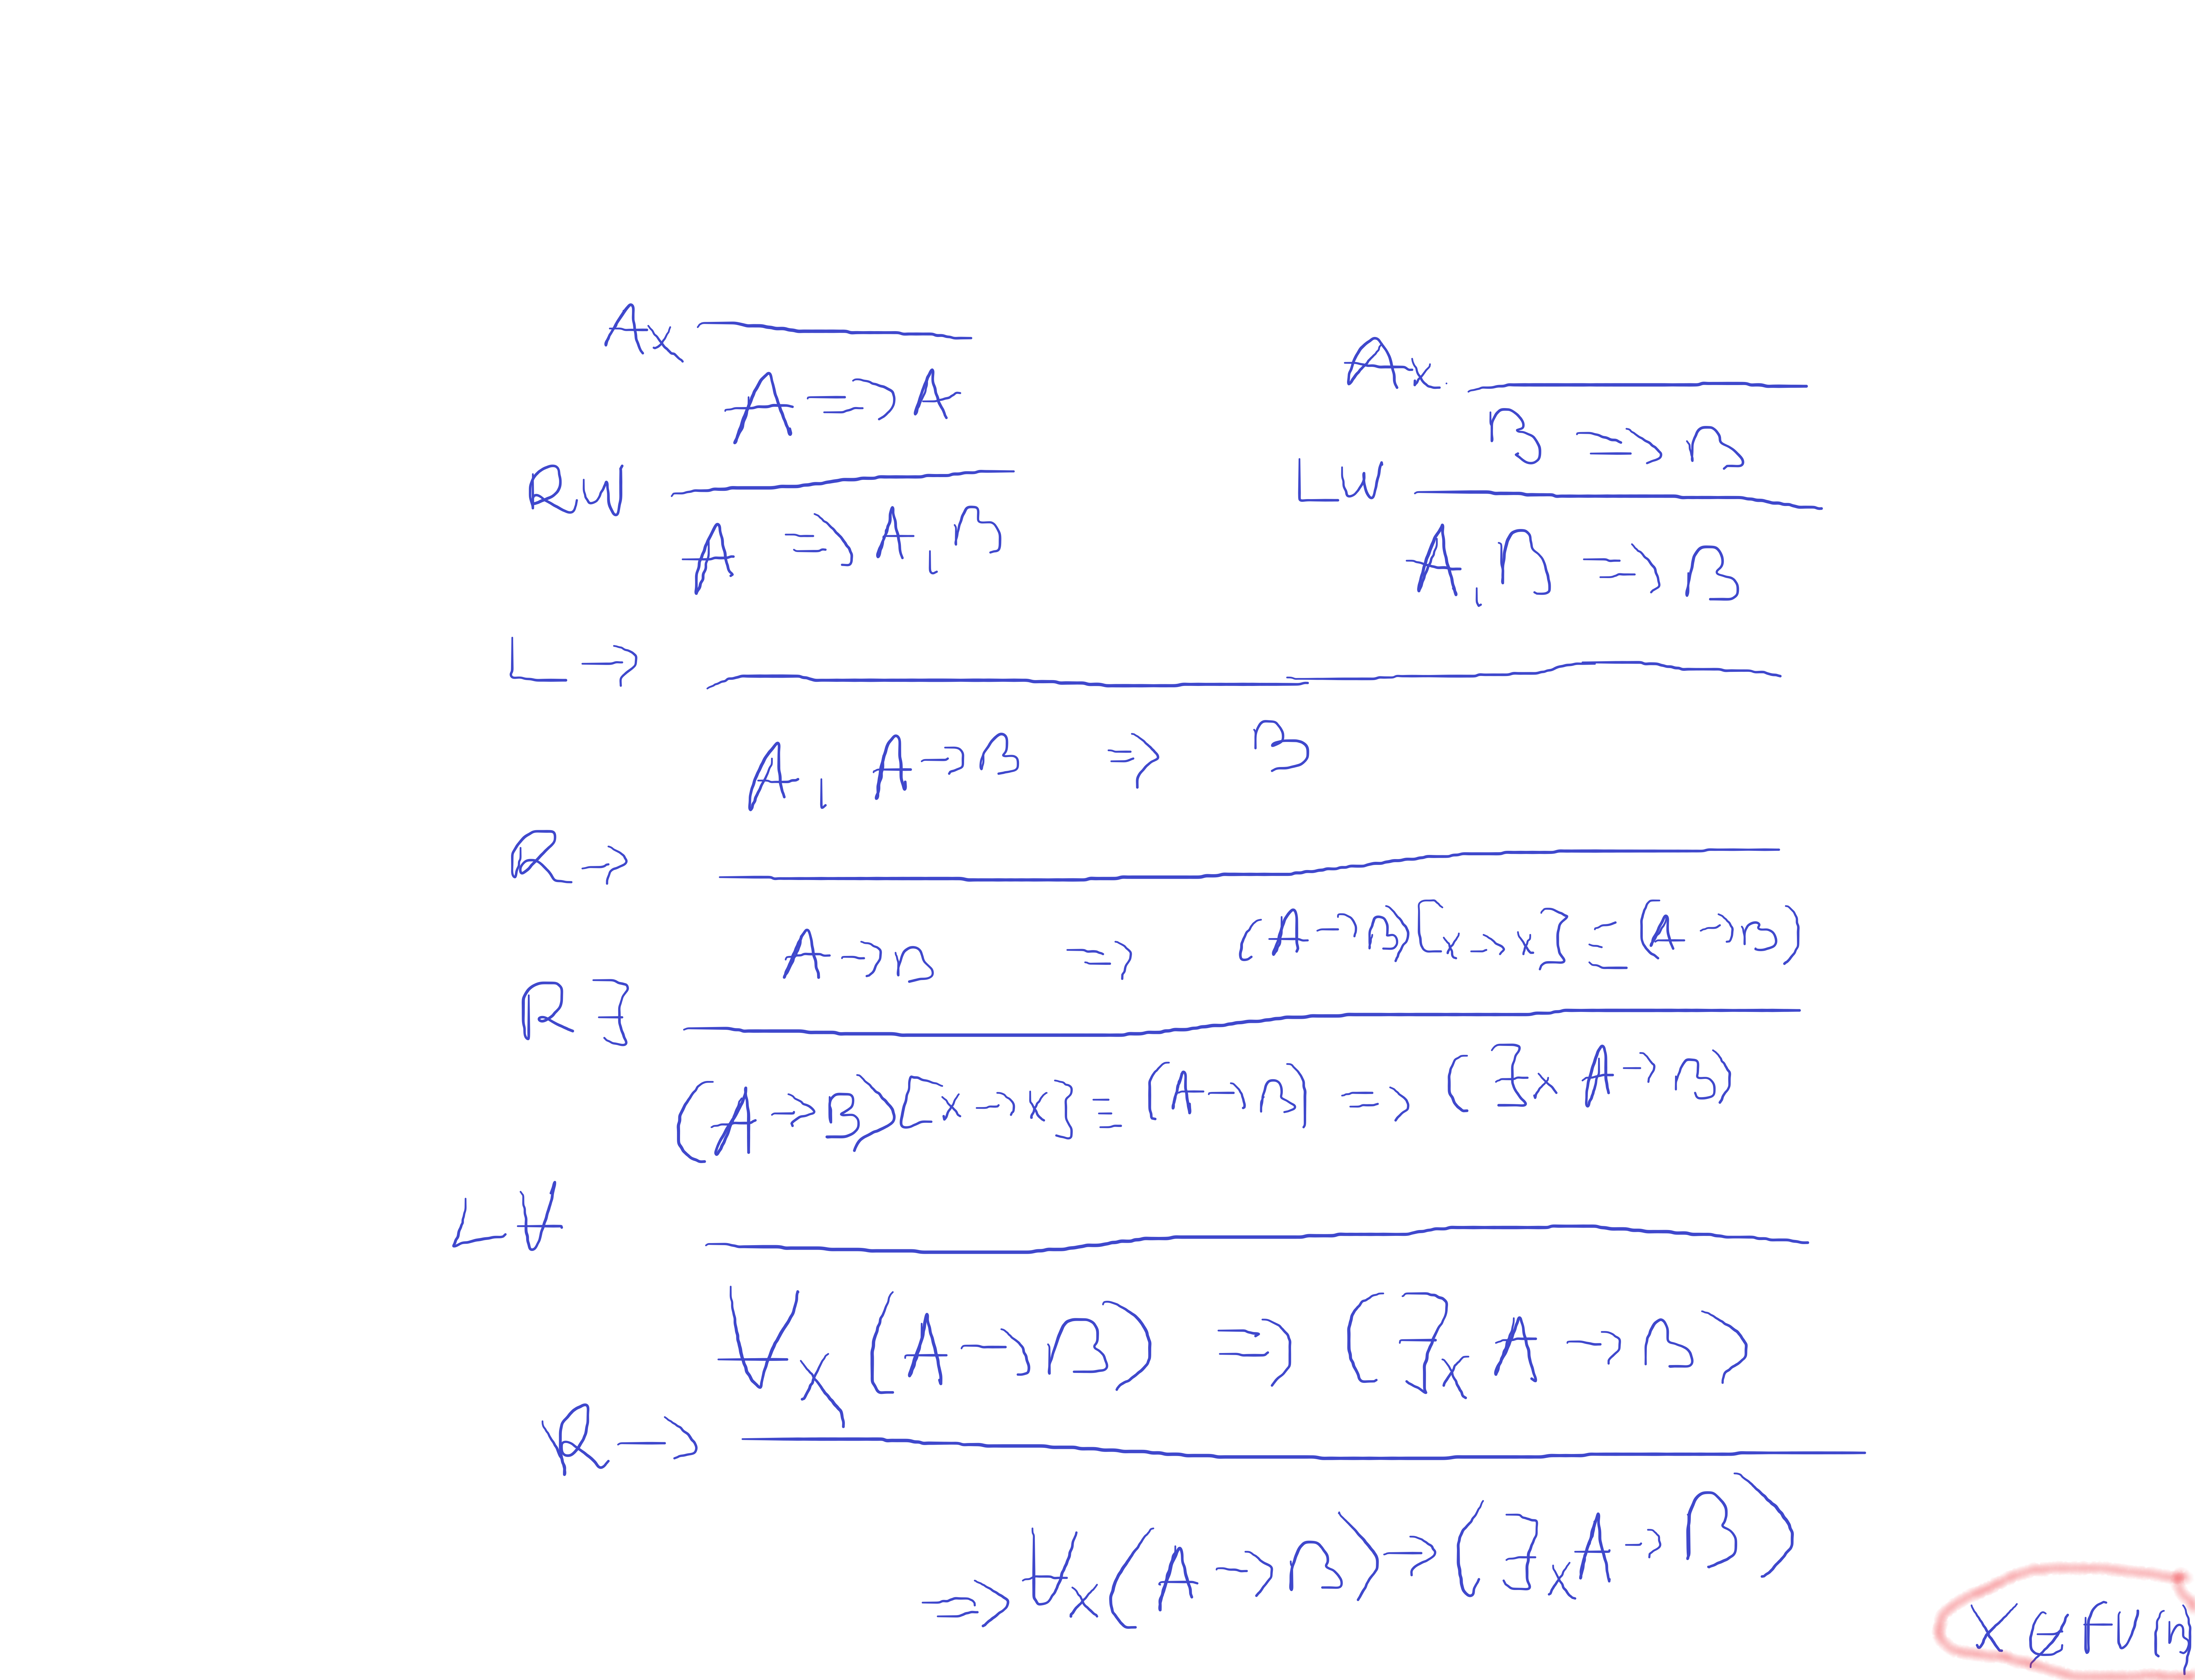 Ax
A => A
Ax.
B => B
RW
A => A, B
LW
A, B => B
L →
A, A → B => B
R →
A → B => (A → B)[x → x] ≡ (A → B)
R ∃
(A → B)[x → x] ≡ (A → B) => (∃x A → B)
L ∀
∀x (A → B) => (∃x A → B)
R →
=> ∀x (A → B) → (∃x A → B)